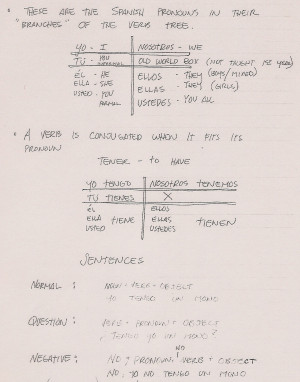 • THESE ARE THE SPANISH PRONOUNS IN THEIR
"BRANCHES" OF THE VERB TREE.
YO - I NOSOTROS - WE
TU - YOU INFORMAL OLD WORLD BOX (NOT TAUGHT 1ST YEAR)
ÉL - HE ELLOS - THEY (BOYS/MIXED)
ELLA - SHE ELLAS - THEY (GIRLS)
USTED - YOU FORMAL USTEDES - YOU ALL
• A VERB IS CONJUGATED WHEN IT FITS ITS
PRONOUN
TENER - TO HAVE
YO TENGO NOSOTROS TENEMOS
TU TIENES X
ÉL ELLOS
ELLA TIENE ELLAS TIENEN
USTED USTEDES
SENTENCES
NORMAL: NOUN + VERB + OBJECT
YO TENGO UN MONO
QUESTION: VERB + PRONOUN + OBJECT
¿TENGO YO UN MONO?
NO
NEGATIVE: NO, PRONOUN VERB + OBJECT
NO, YO NO TENGO UN MONO